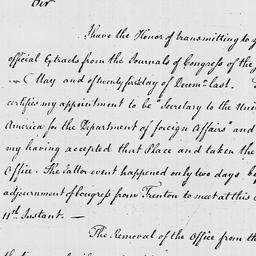 Sir
I have the Honor of transmitting to y
official Extracts from the Journals of Congress of the
May and of twenty first day of Decemr. last.
certifies my appointment to be "Secretary to the Unit
America for the Department of foreign Affairs" and
my having accepted that Place and taken the
Office. The latter event happened only two days be
adjournment of Congress from Trenton to meet at this C
11th Instant. —
The Removal of the Office from th